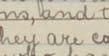 ns, and t
hey are co